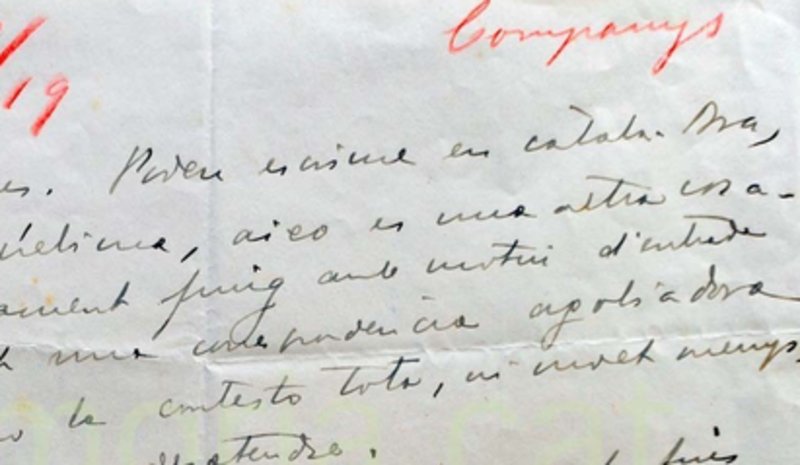 Companys
/19
es. Poden escriure en català. Ara,
, aico es una altra cosa.
ament fuig amb motiu d'entrada
una correspondencia agobiadora
la contesto tota, ni molt menys,
atendre.